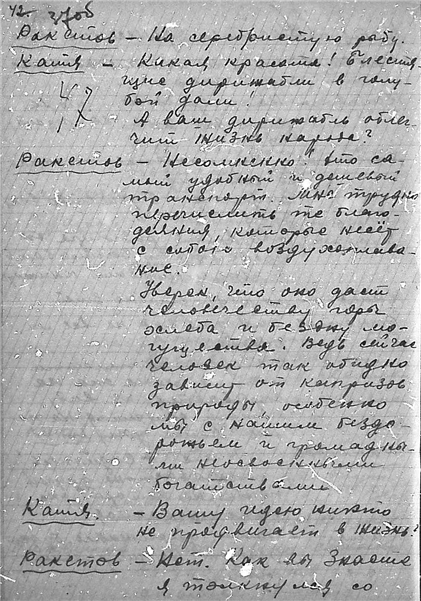 42
37об
Ракетов – На серебристую рыбу.
Катя – Какая красота! Блестя-
щие дирижабли в голу-
бой дали!
А ваш дирижабль облег-
чит жизнь народа?
Ракетов – Несомненно! Это са-
мый удобный и дешевый
транспорт. Мне трудно
перечислить те благо-
деяния, которые несёт
с собою воздухоплава-
ние.
Уверен, что оно даст
человечеству горы
хлеба и бездну мо-
гущества. Ведь сейчас
человек так обидно
зависит от капризов
природы, особенно
мы с нашим бездо-
рожьем и громадны-
ми неосвоенными
богатствами
Катя. – Вашу идею никто
не продвигает в жизнь?
Ракетов – Нет. Как вы знаете
я толкнулся со